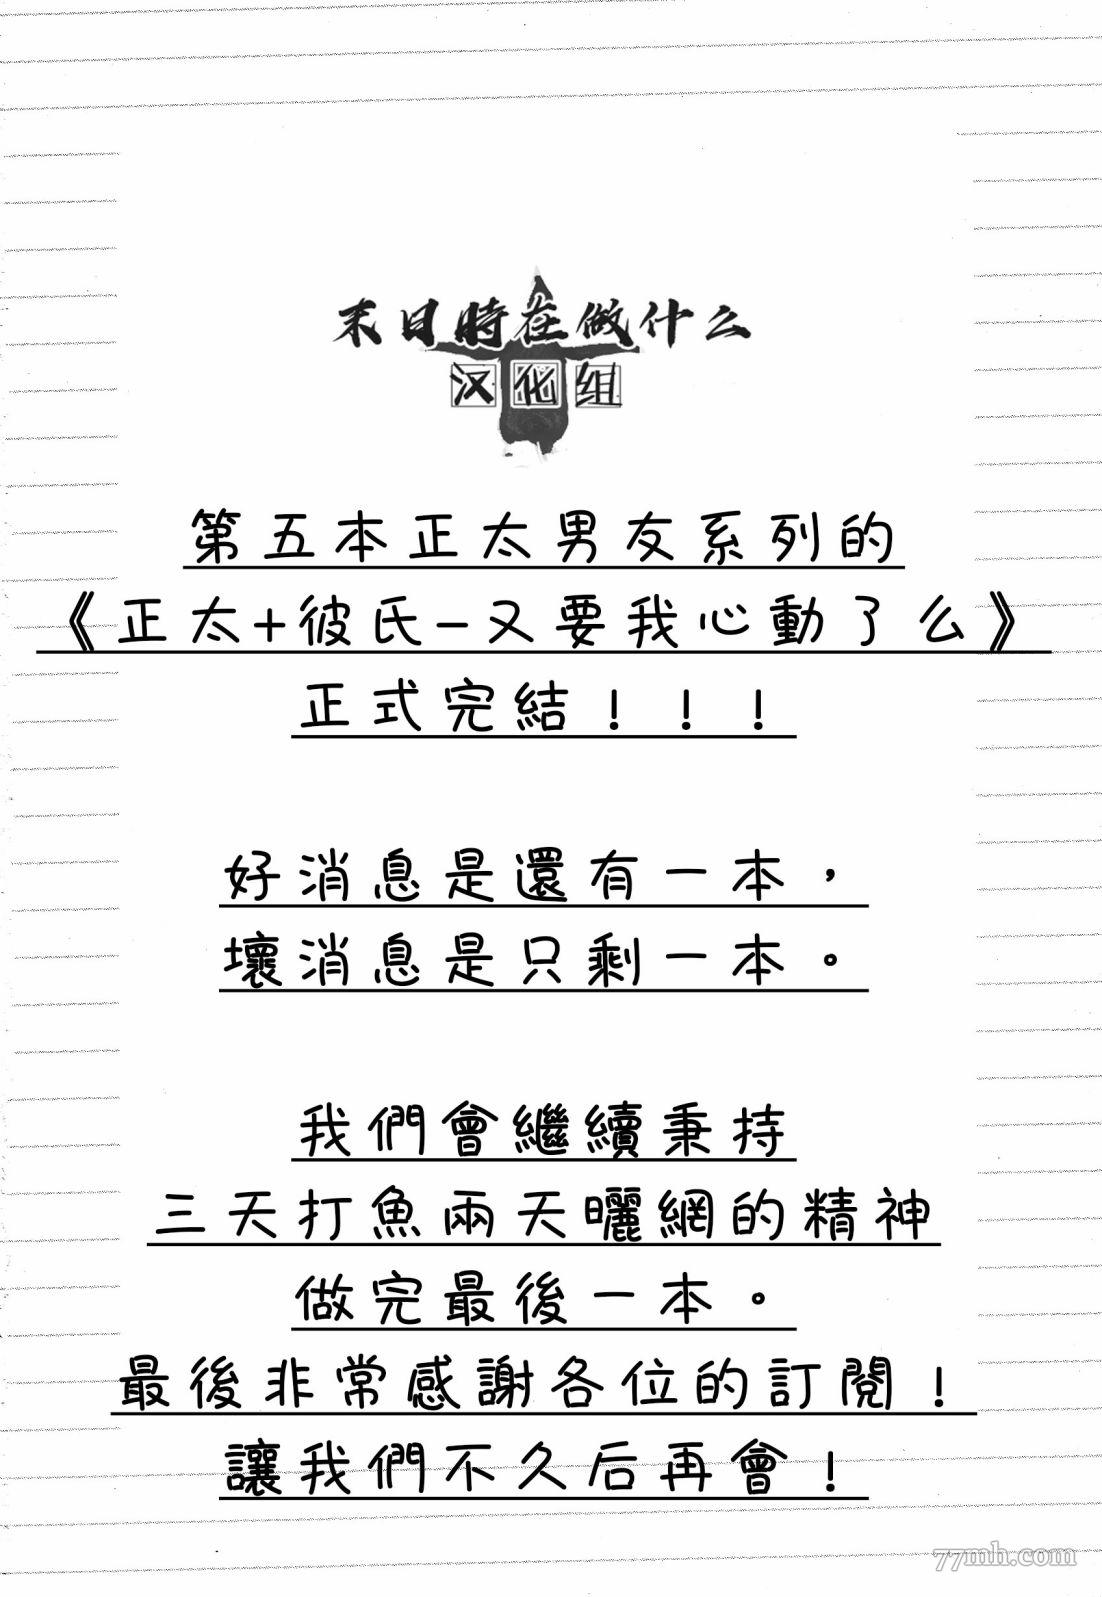 末日時在做什么
汉化组
第五本正太男友系列的
《正太+彼氏-又要我心動了么》
正式完結！！！
好消息是還有一本，
壞消息是只剩一本。
我們會繼續秉持
三天打魚兩天曬網的精神
做完最後一本。
最後非常感謝各位的訂閱！
讓我們不久后再會！
77mh.com